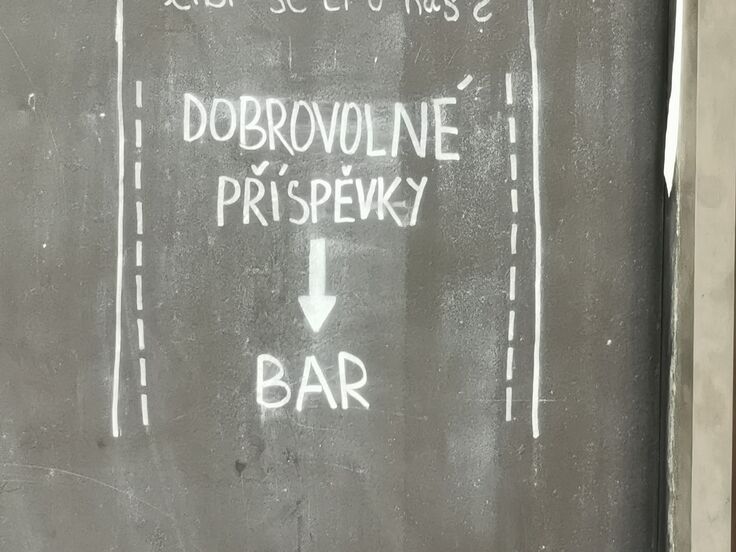 se ti u nás?
DOBROVOLNÉ
PŘÍSPĚVKY
BAR